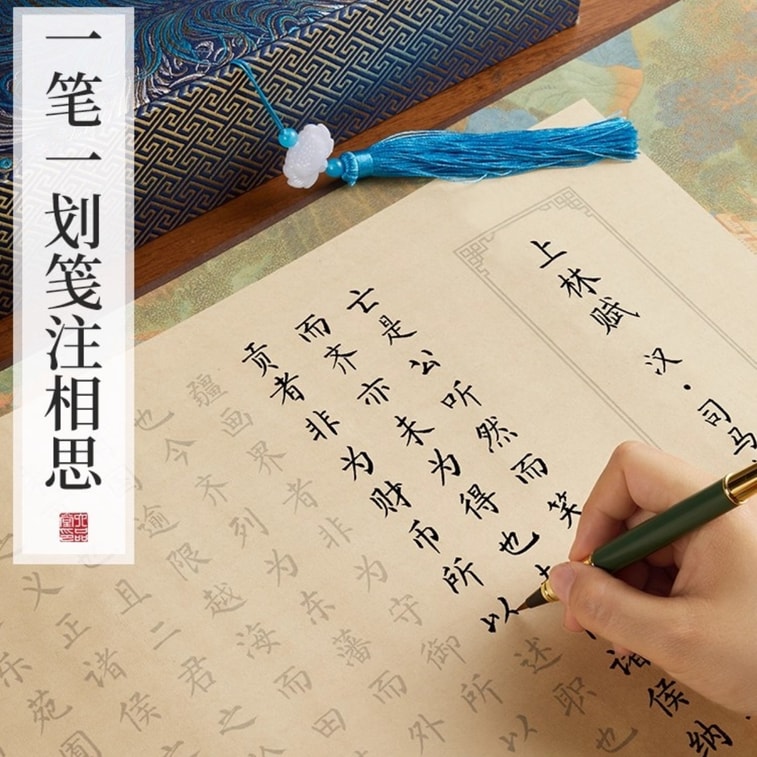 一笔一划笺注相思
上林赋 汉·司马
亡是公听然而笑
而齐亦未为得也 诸侯纳
贡者非为财币所以述职也
疆画界者非为守御所以
也今齐列为东藩而外
逾限越海而田
且二君之
义正诸侯
苑囿